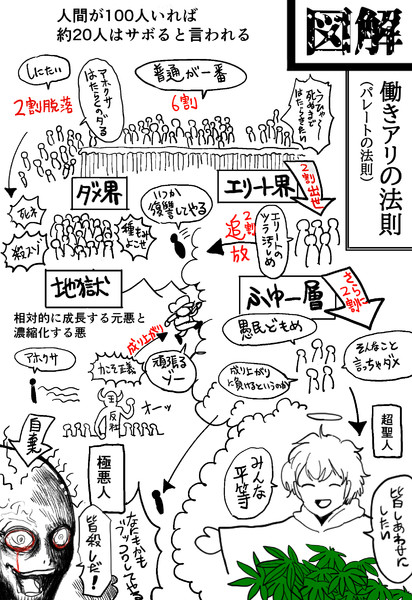 人間が100人いれば
約20人はサボると言われる
図解
働きアリの法則
（パレートの法則）
しにたい
2割脱落
アホクサ
はたらくのダル
普通が一番
6割
うひゃー
死ぬまで
はたらきたい
ダメ界
いつか
復讐してやる
エリート界
2割出世
死ね
殺スゾ
種もみ
よこせ
2割
追放
エリートの
ツラ汚しめ
地獄
相対的に成長する元悪と
濃縮化する悪
成り上がり
ふゆー層
さらに
2割
愚民どもめ
アホクサ
カこそ正義
頑張る
ゾー
成り上がり
に負けるというのか
そんなこと
言っちゃダメ
主
反社
オーッ
自棄
極悪人
超聖人
みんな
平等
皆殺しだ!
なにもかも
皆しあわせに
したい